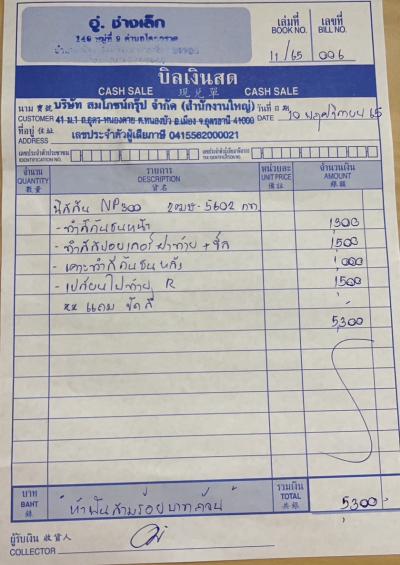 อู่ ช่างเล็ก
เล่มที่ เลขที่
BOOK NO. BILL NO.
11/65 006
บิลเงินสด
CASH SALE 現兌單 CASH SALE
นาม 寶號 บริษัท สมโภชน์กรุ๊ป จำกัด (สำนักงานใหญ่) วันที่ 日期
CUSTOMER 41 ม.1 ถ.อุดร-หนองคาย ต.หนองบัว อ.เมือง จ.อุดรธานี 41000 DATE 10 พฤศจิกายน 65
ที่อยู่ 住址 เลขประจำตัวผู้เสียภาษี 0415562000021
ADDRESS
เลขประจำตัวประชาชน
IDENTIFICATION NO.
จำนวน รายการ หน่วยละ จำนวนเงิน
QUANTITY DESCRIPTION UNIT PRICE AMOUNT
數量 貨名 備註 銀額
นิสสัน NP300 5602 กท
- ทำสีกันชนหน้า 1,300
- ทำสีสปอยเกอร์ฝาท้าย + ซีล 1500
- เคาะทำสีกันชนหลัง 1,000
- เปลี่ยนไฟท้าย R 1500
xx แถม ขัดสี
5,300
บาท รวมเงิน
BAHT ห้าพันสามร้อยบาทถ้วน TOTAL 5300
銖 共銀
ผู้รับเงิน 收貨人
COLLECTOR